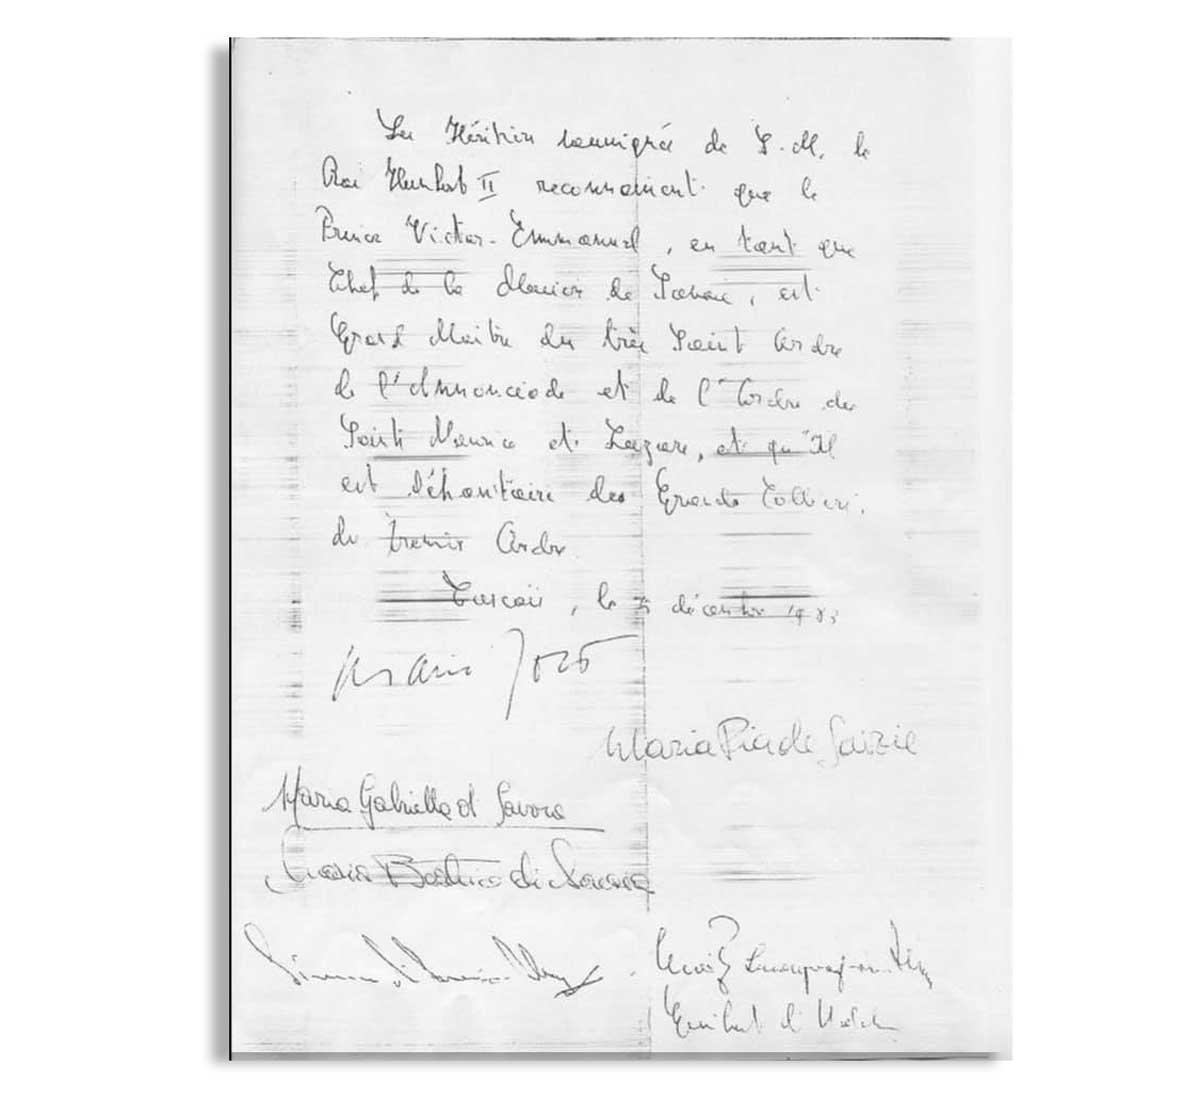 Les Héritiers soussignés de S.M. le
Roi Humbert II reconnaissent que le
Prince Victor-Emmanuel, en tant que
Chef de la Maison de Savoie, est
Grand Maître du très Saint Ordre
de l'Annonciade et de l'Ordre des
Saints Maurice et Lazare, et qu'Il
est dépositaire des Grands Colliers
du premier Ordre.
le décembre 1983
Marie José
Maria Pia de Savoie
Maria Gabriella di Savoia
Maria Beatrice di Savoia